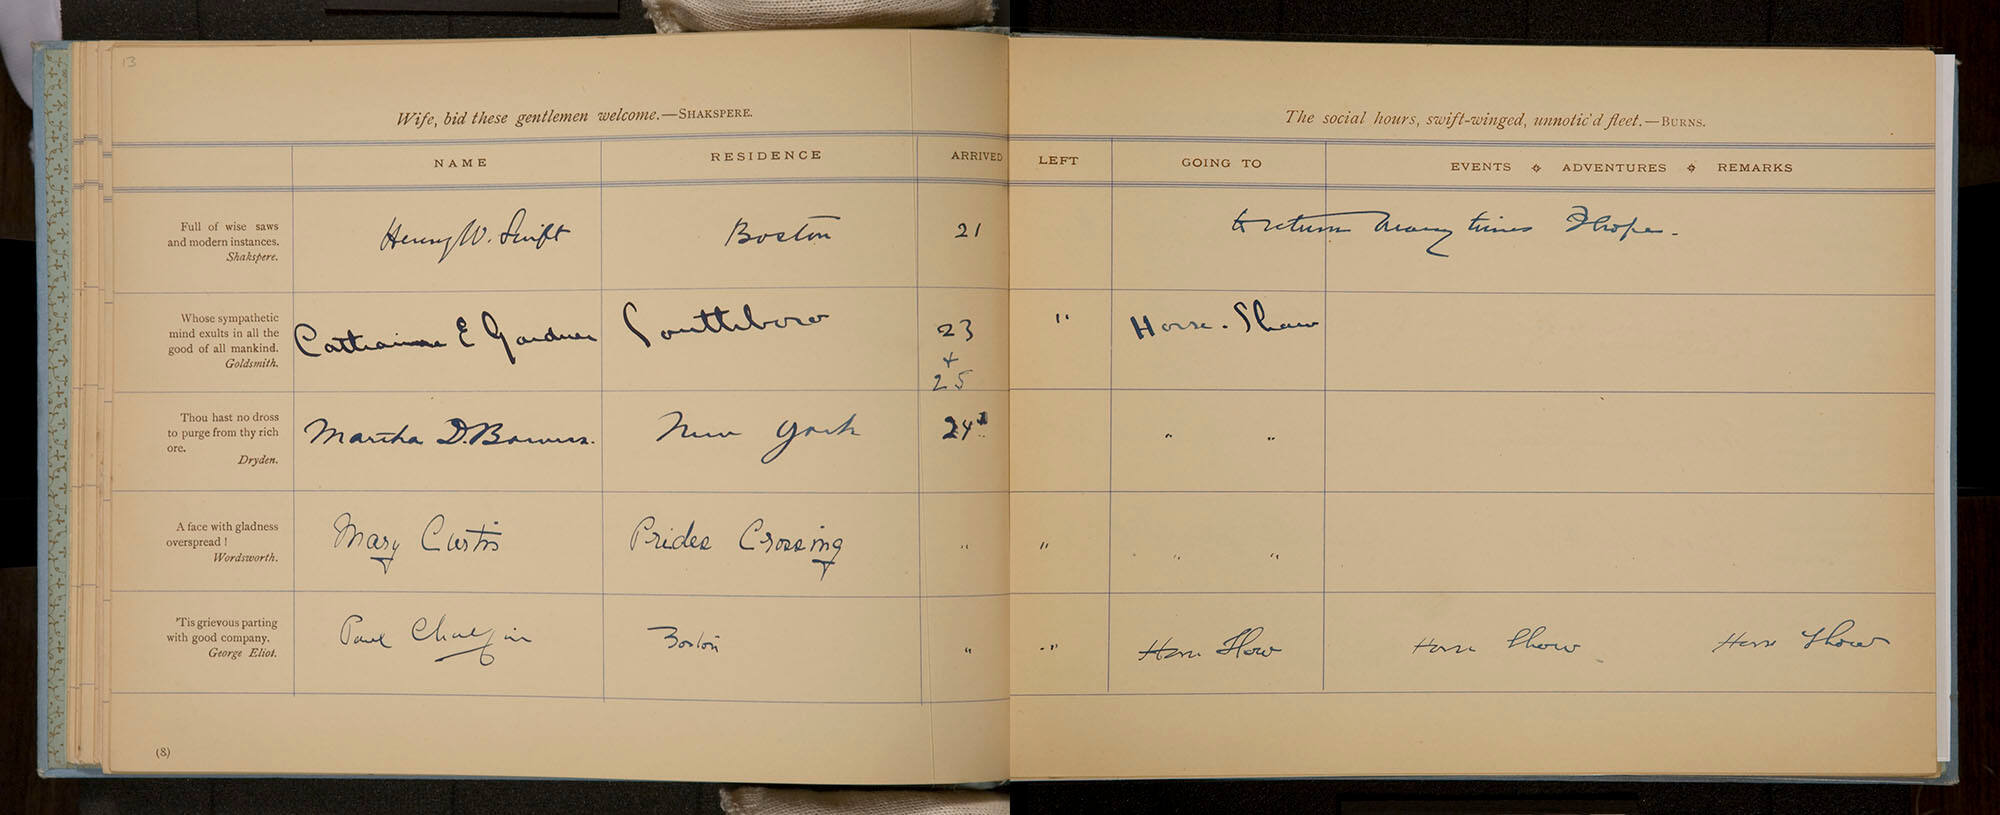 13
Wife, bid these gentlemen welcome.—SHAKSPERE.
The social hours, swift-winged, unnotic'd fleet.—BURNS.
NAME RESIDENCE ARRIVED LEFT GOING TO EVENTS ADVENTURES REMARKS
Full of wise saws
and modern instances.
Shakspere.
Henry W. Swift Boston 21 to return many times I hope.
Whose sympathetic
mind exults in all the
good of all mankind.
Goldsmith.
Catharine E Gardner Southboro 23 + 25 " Horse-Show
Thou hast no dross
to purge from thy rich
ore.
Dryden.
Martha D. Bowers. New York 24 " "
A face with gladness
overspread!
Wordsworth.
Mary Curtis Prides Crossing " " " "
'Tis grievous parting
with good company.
George Eliot.
Paul Chalfin Boston " " Horse Show Horse Show Horse Show
(8)